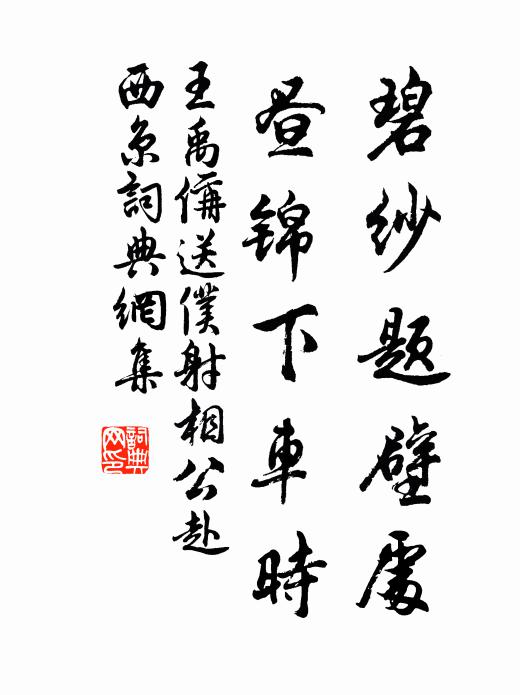 碧紗題壁處
晝錦下車時
王禹偁送僕射相公赴
西京詞典網集
詞典
网印